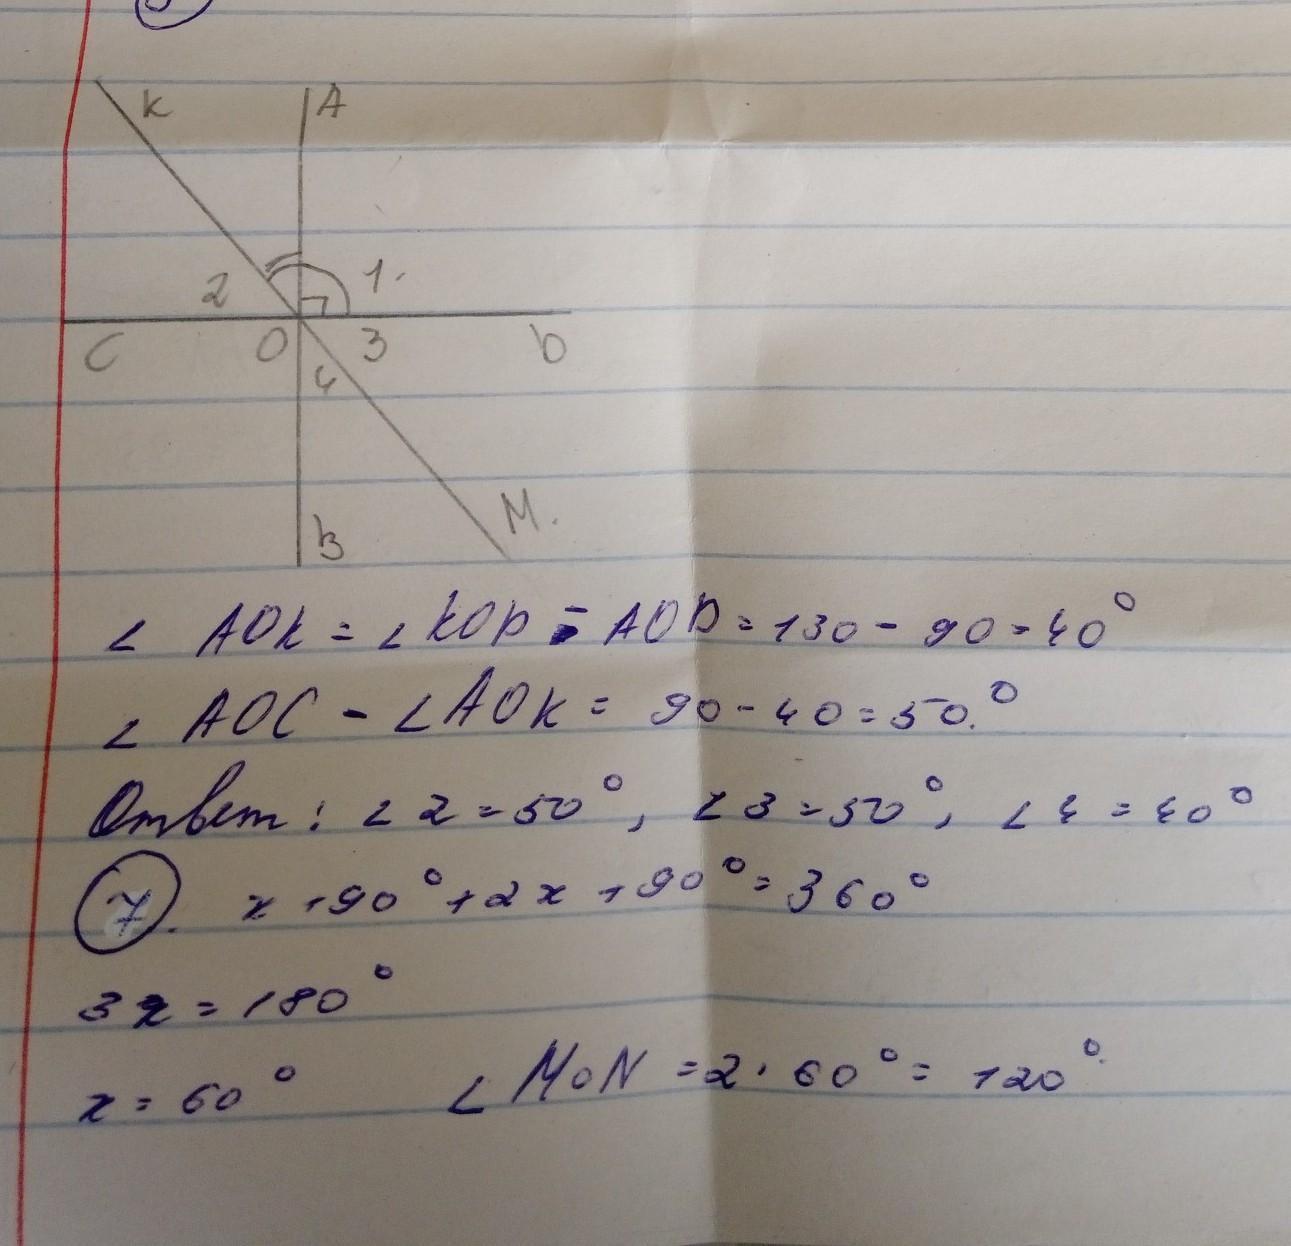 K A
2 1.
C O 3 D
4
B M.
∠ AOK = ∠ KOD - AOD = 130 - 90 = 40°
∠ AOC - ∠AOK = 90 - 40 = 50.°
Ответ: ∠2 = 50°, ∠3 = 50°, ∠4 = 40°
7. x + 90° + 2x + 90° = 360°
3x = 180°
x = 60° ∠MON = 2 · 60° = 120°